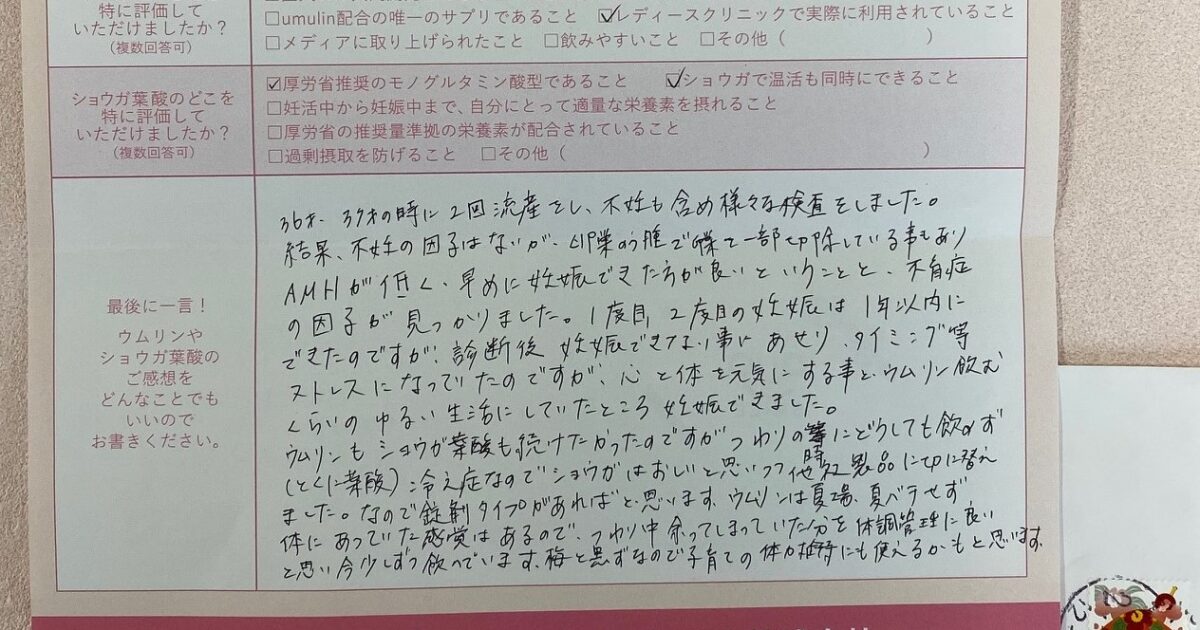 特に評価して
いただけましたか？
（複数回答可）
□umulin配合の唯一のサプリであること ☑レディースクリニックで実際に利用されていること
□メディアに取り上げられたこと □飲みやすいこと □その他（ ）
ショウガ葉酸のどこを
特に評価して
いただけましたか？
（複数回答可）
☑厚労省推奨のモノグルタミン酸型であること ☑ショウガで温活も同時にできること
□妊活中から妊娠中まで、自分にとって適量な栄養素を摂れること
□厚労省の推奨量準拠の栄養素が配合されていること
□過剰摂取を防げること □その他（ ）
最後に一言！
ウムリンや
ショウガ葉酸の
ご感想を
どんなことでも
いいので
お書きください。
36才、37才の時に2回流産をし、不妊も含め様々な検査をしました。
結果、不妊の因子はないが、卵巣のう腫で 一部切除している事もあり
AMHが低く、早めに妊娠できた方が良いということと、不育症
の因子が見つかりました。1度目、2度目の妊娠は1年以内に
できたのですが、診断後 妊娠できない事に あせり、タイミング等
ストレスになっていたのですが、心と体を元気にする事と、ウムリン飲む
くらいの ゆるい 生活にしていたところ 妊娠できました。
ウムリンも ショウガ葉酸も、続けたかったのですが つわりの時にどうしても飲めず
(とくに葉酸) 冷え症なのでショウガはおしいと思いつつ 他社製品に切に替え
ました。なので錠剤タイプがあればと思います。ウムリンは夏場、夏バテせず
体にあっていた感覚はあるので、つわり中 余ってしまっていた分を体調管理に良い
と思い今少しずつ飲んでいます。梅と黒ずなので子育ての体力維持にも使えるかもと思います。